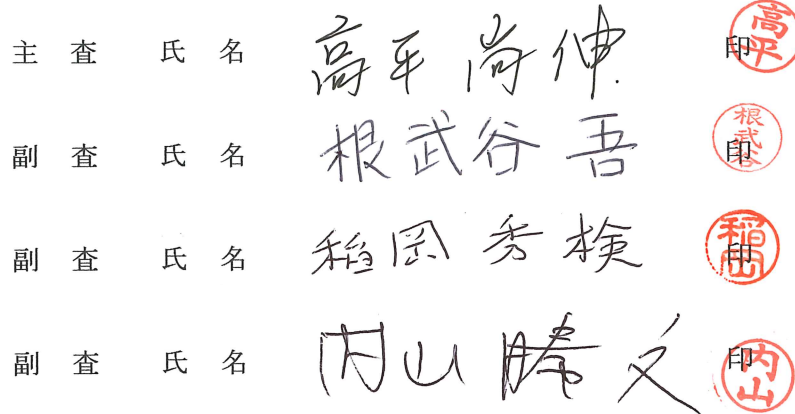 主査 氏名 高平尚伸 印 高平
副査 氏名 根武谷吾 印 根武谷
副査 氏名 稲岡秀検 印 稲岡
副査 氏名 内山勝文 印 内山